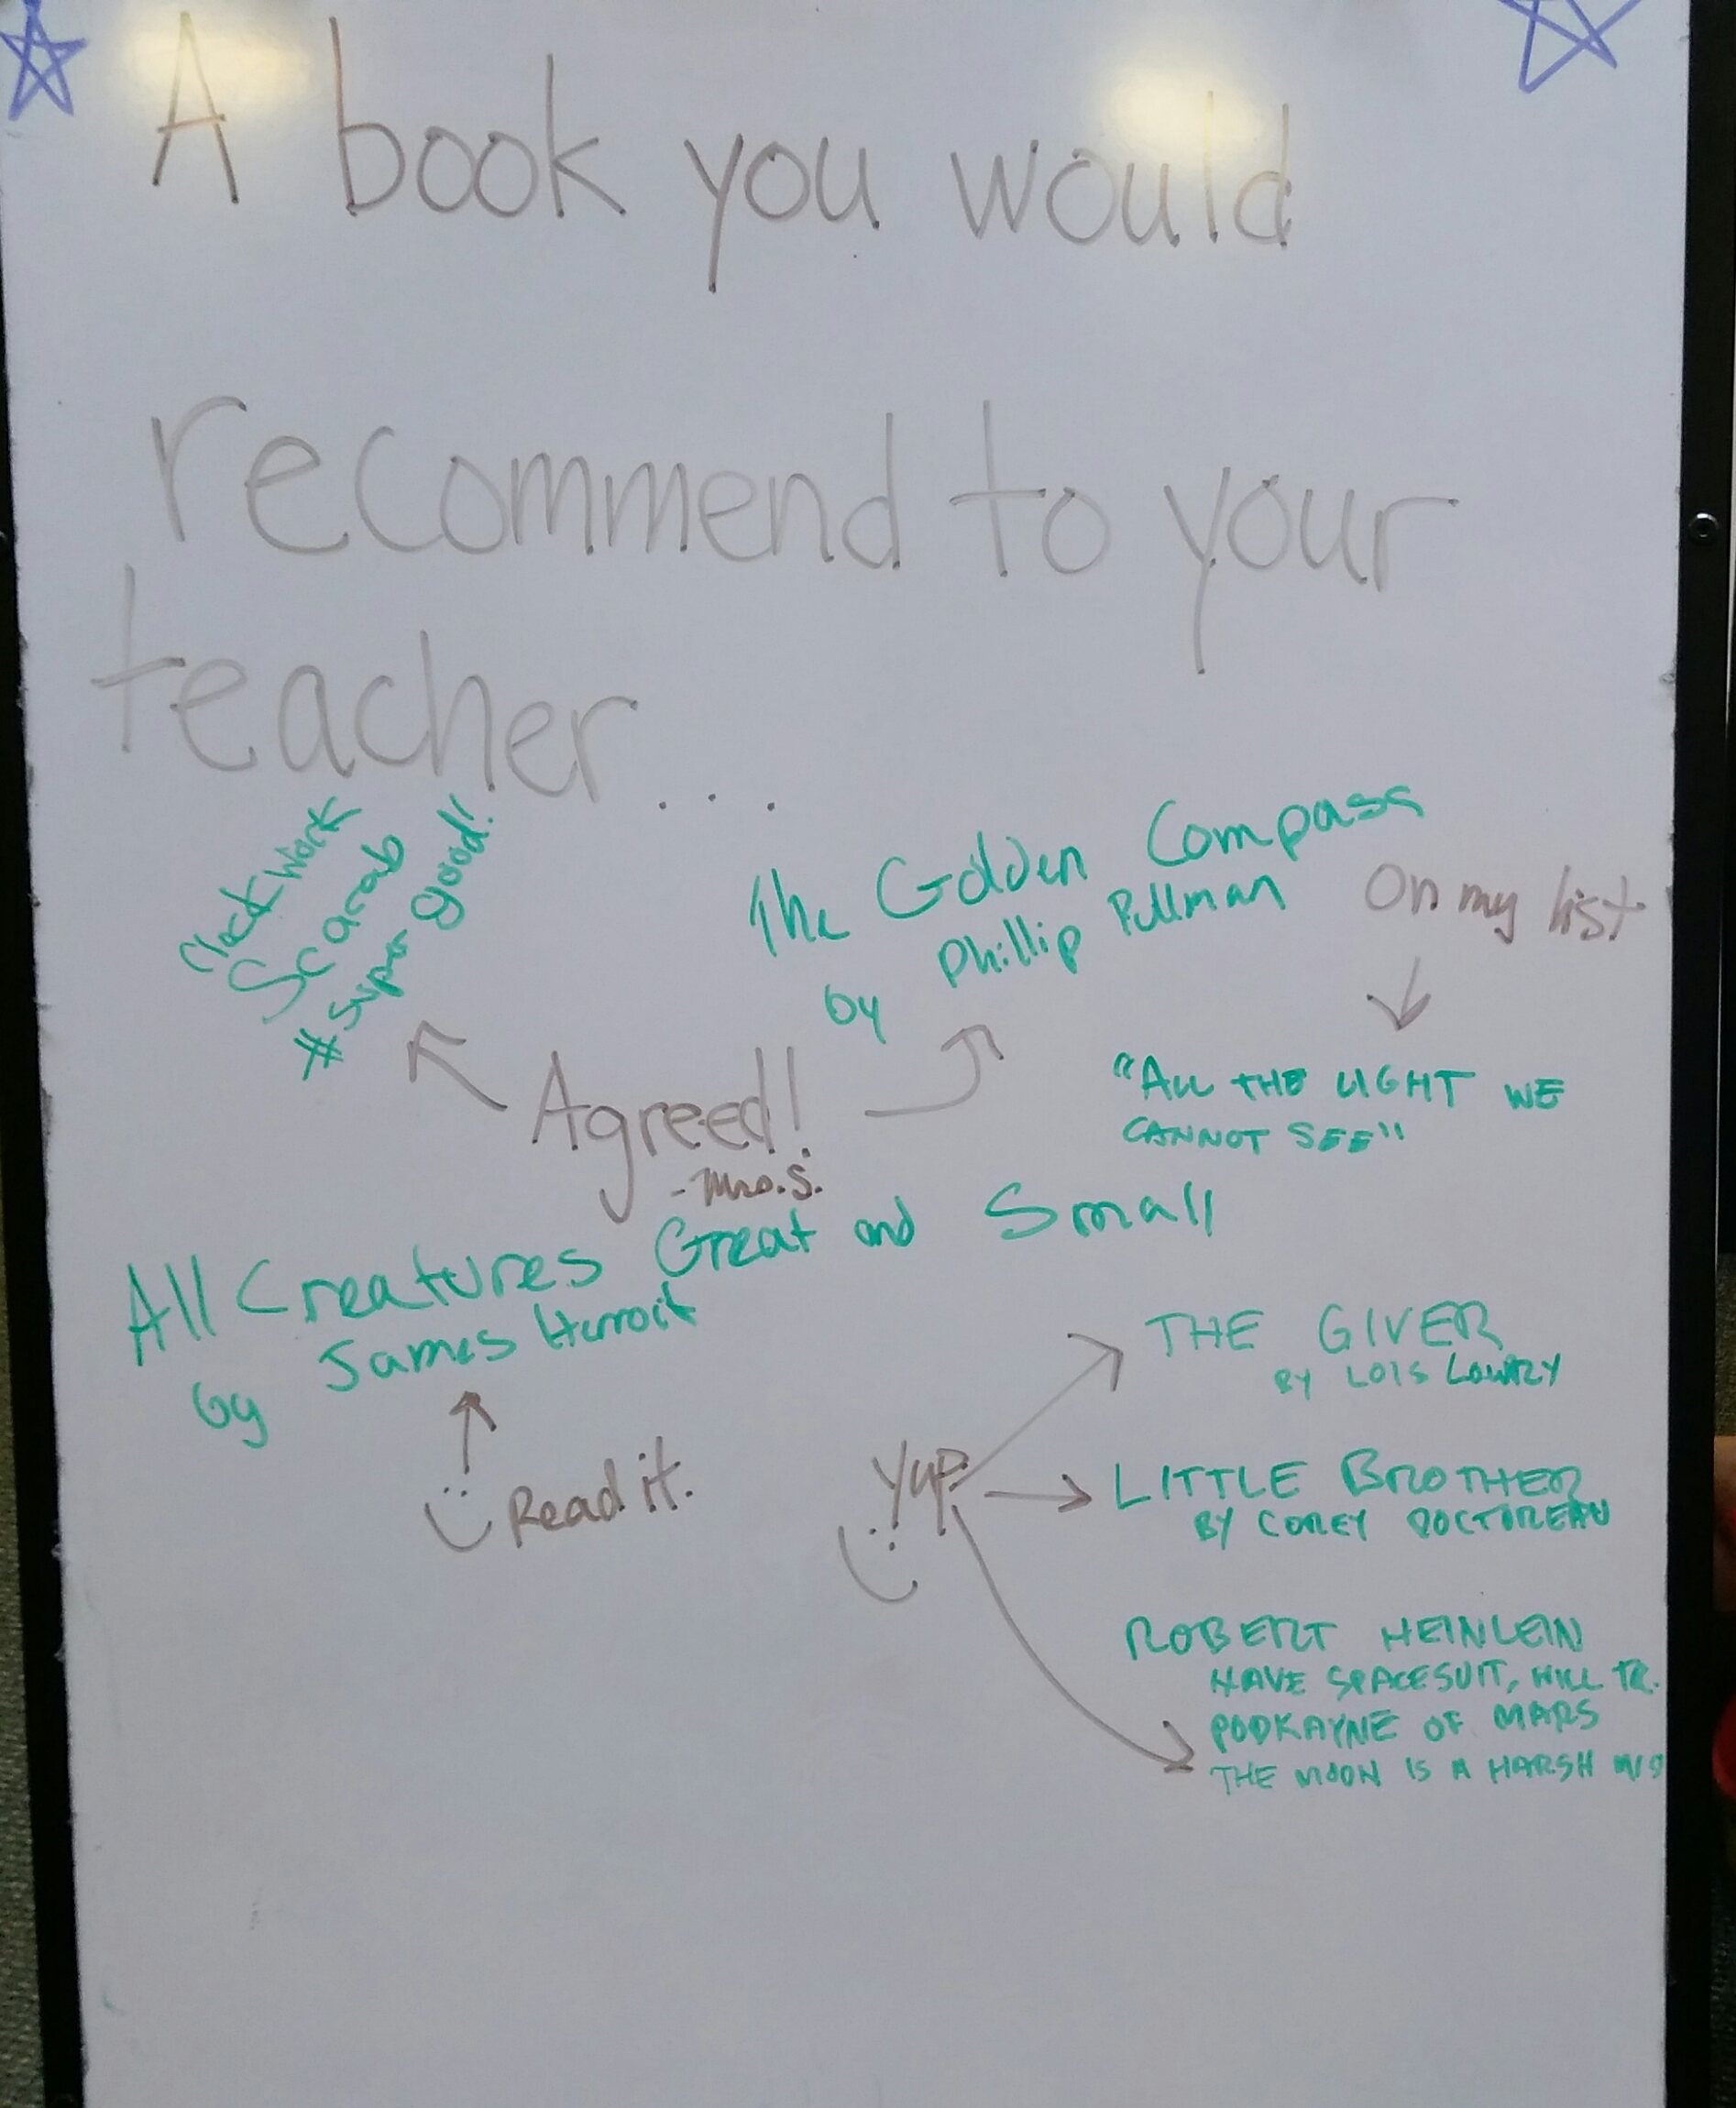 A book you would
recommend to your
teacher...
Clockwork
Scarab
#Super good!
The Golden Compass
by Phillip Pullman
On my list
Agreed!
-Mrs. S.
"ALL THE LIGHT WE
CANNOT SEE"
All Creatures Great and Small
by James Herroit
Read it.
Yup
THE GIVER
BY LOIS LOWRY
LITTLE BROTHER
BY COREY DOCTOREAU
ROBERT HEINLEIN
HAVE SPACESUIT, WILL TR.
PODKAYNE OF MARS
THE MOON IS A HARSH MIS